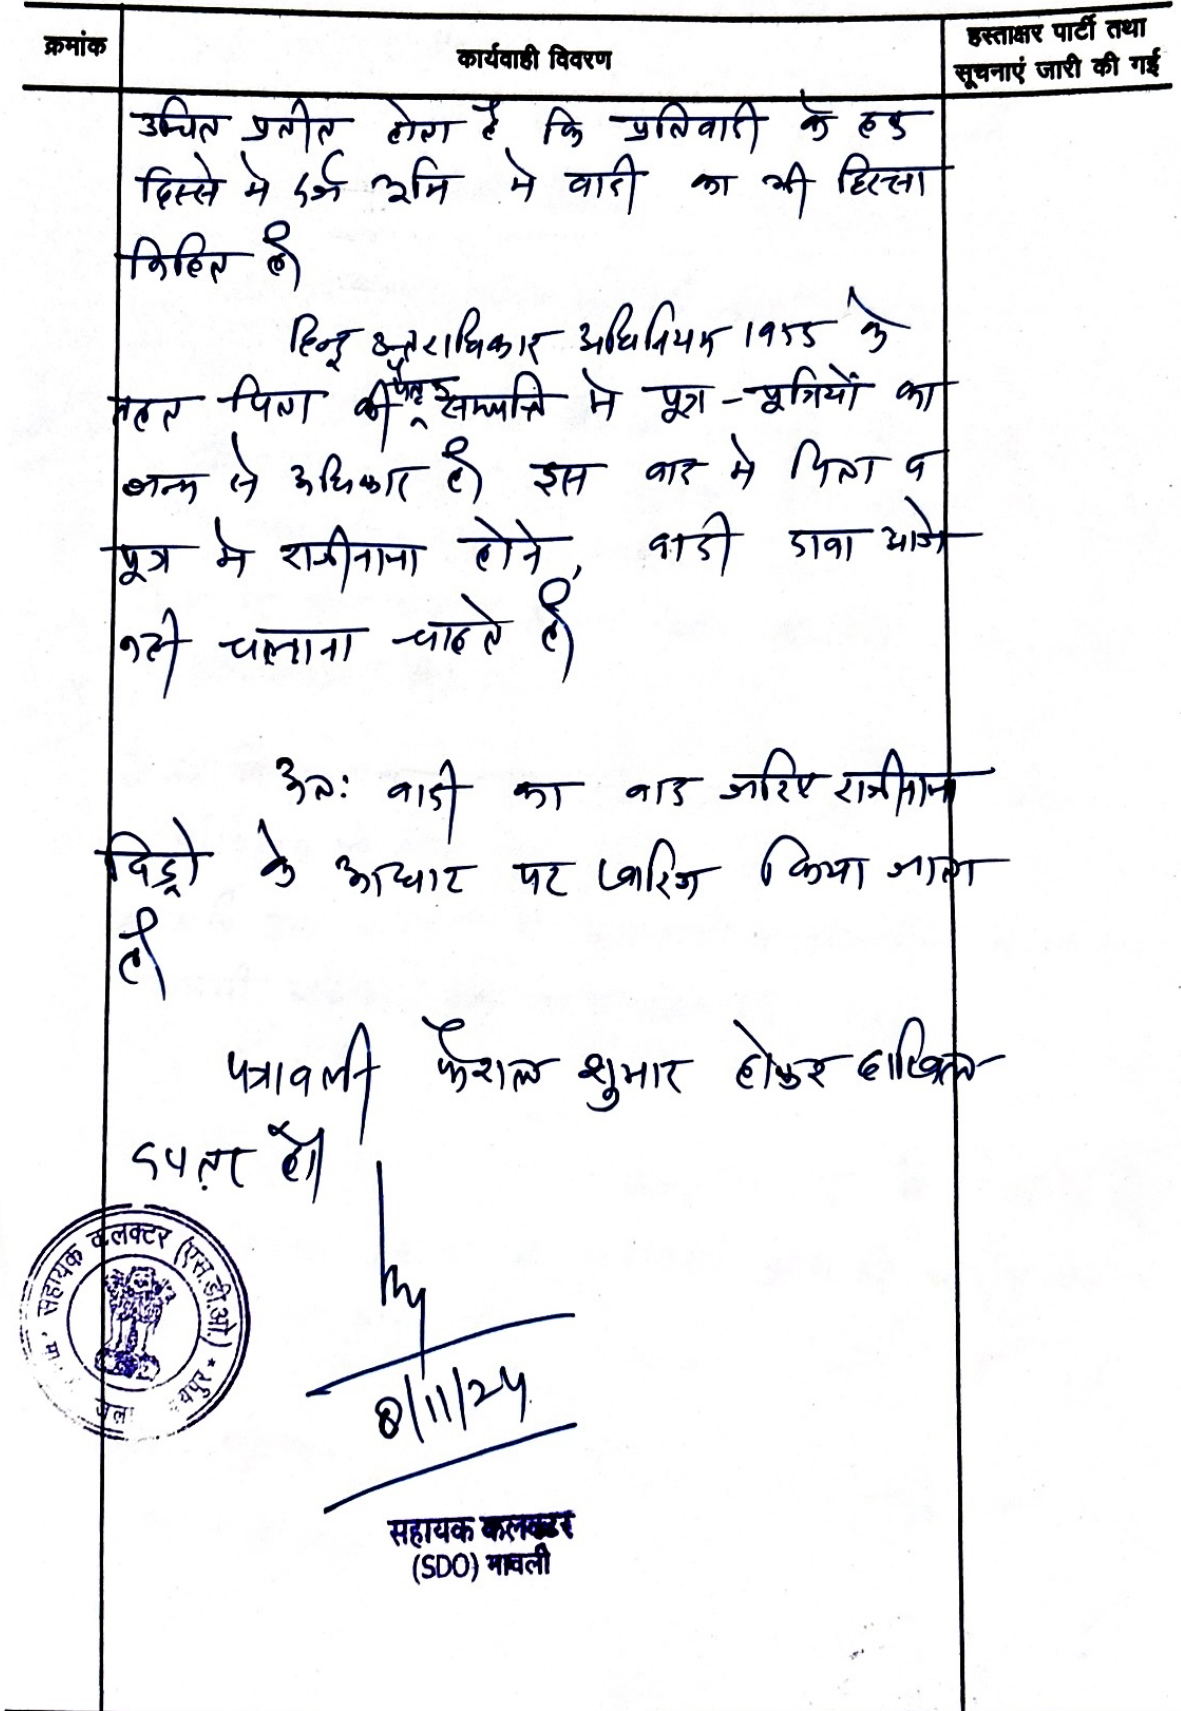 क्रमांक
कार्यवाही विवरण
हस्ताक्षर पार्टी तथा
सूचनाएं जारी की गई
उचित प्रतीत होता है कि प्रतिवादी के हक
हिस्से मे दर्ज भूमि मे वादी का भी हिस्सा
निहित है।
हिन्दू उत्तराधिकार अधिनियम 1955 के
तहत पिता की पैतृक सम्पत्ति मे पुत्र - पुत्रियों का
जन्म से अधिकार है। इस वाद मे पिता व
पुत्र मे राजीनामा होने, वादी दावा आगे
नही चलाना चाहते है।
अतः वादी का वाद जरिए राजीनामा
विड्रो के आधार पर खारिज किया जाता
है।
पत्रावली फैसल शुमार होकर दाखिल
दफ्तर हो।
सहायक कलक्टर (एस.डी.ओ.)
8/11/24
सहायक कलक्टर
(SDO) मावली